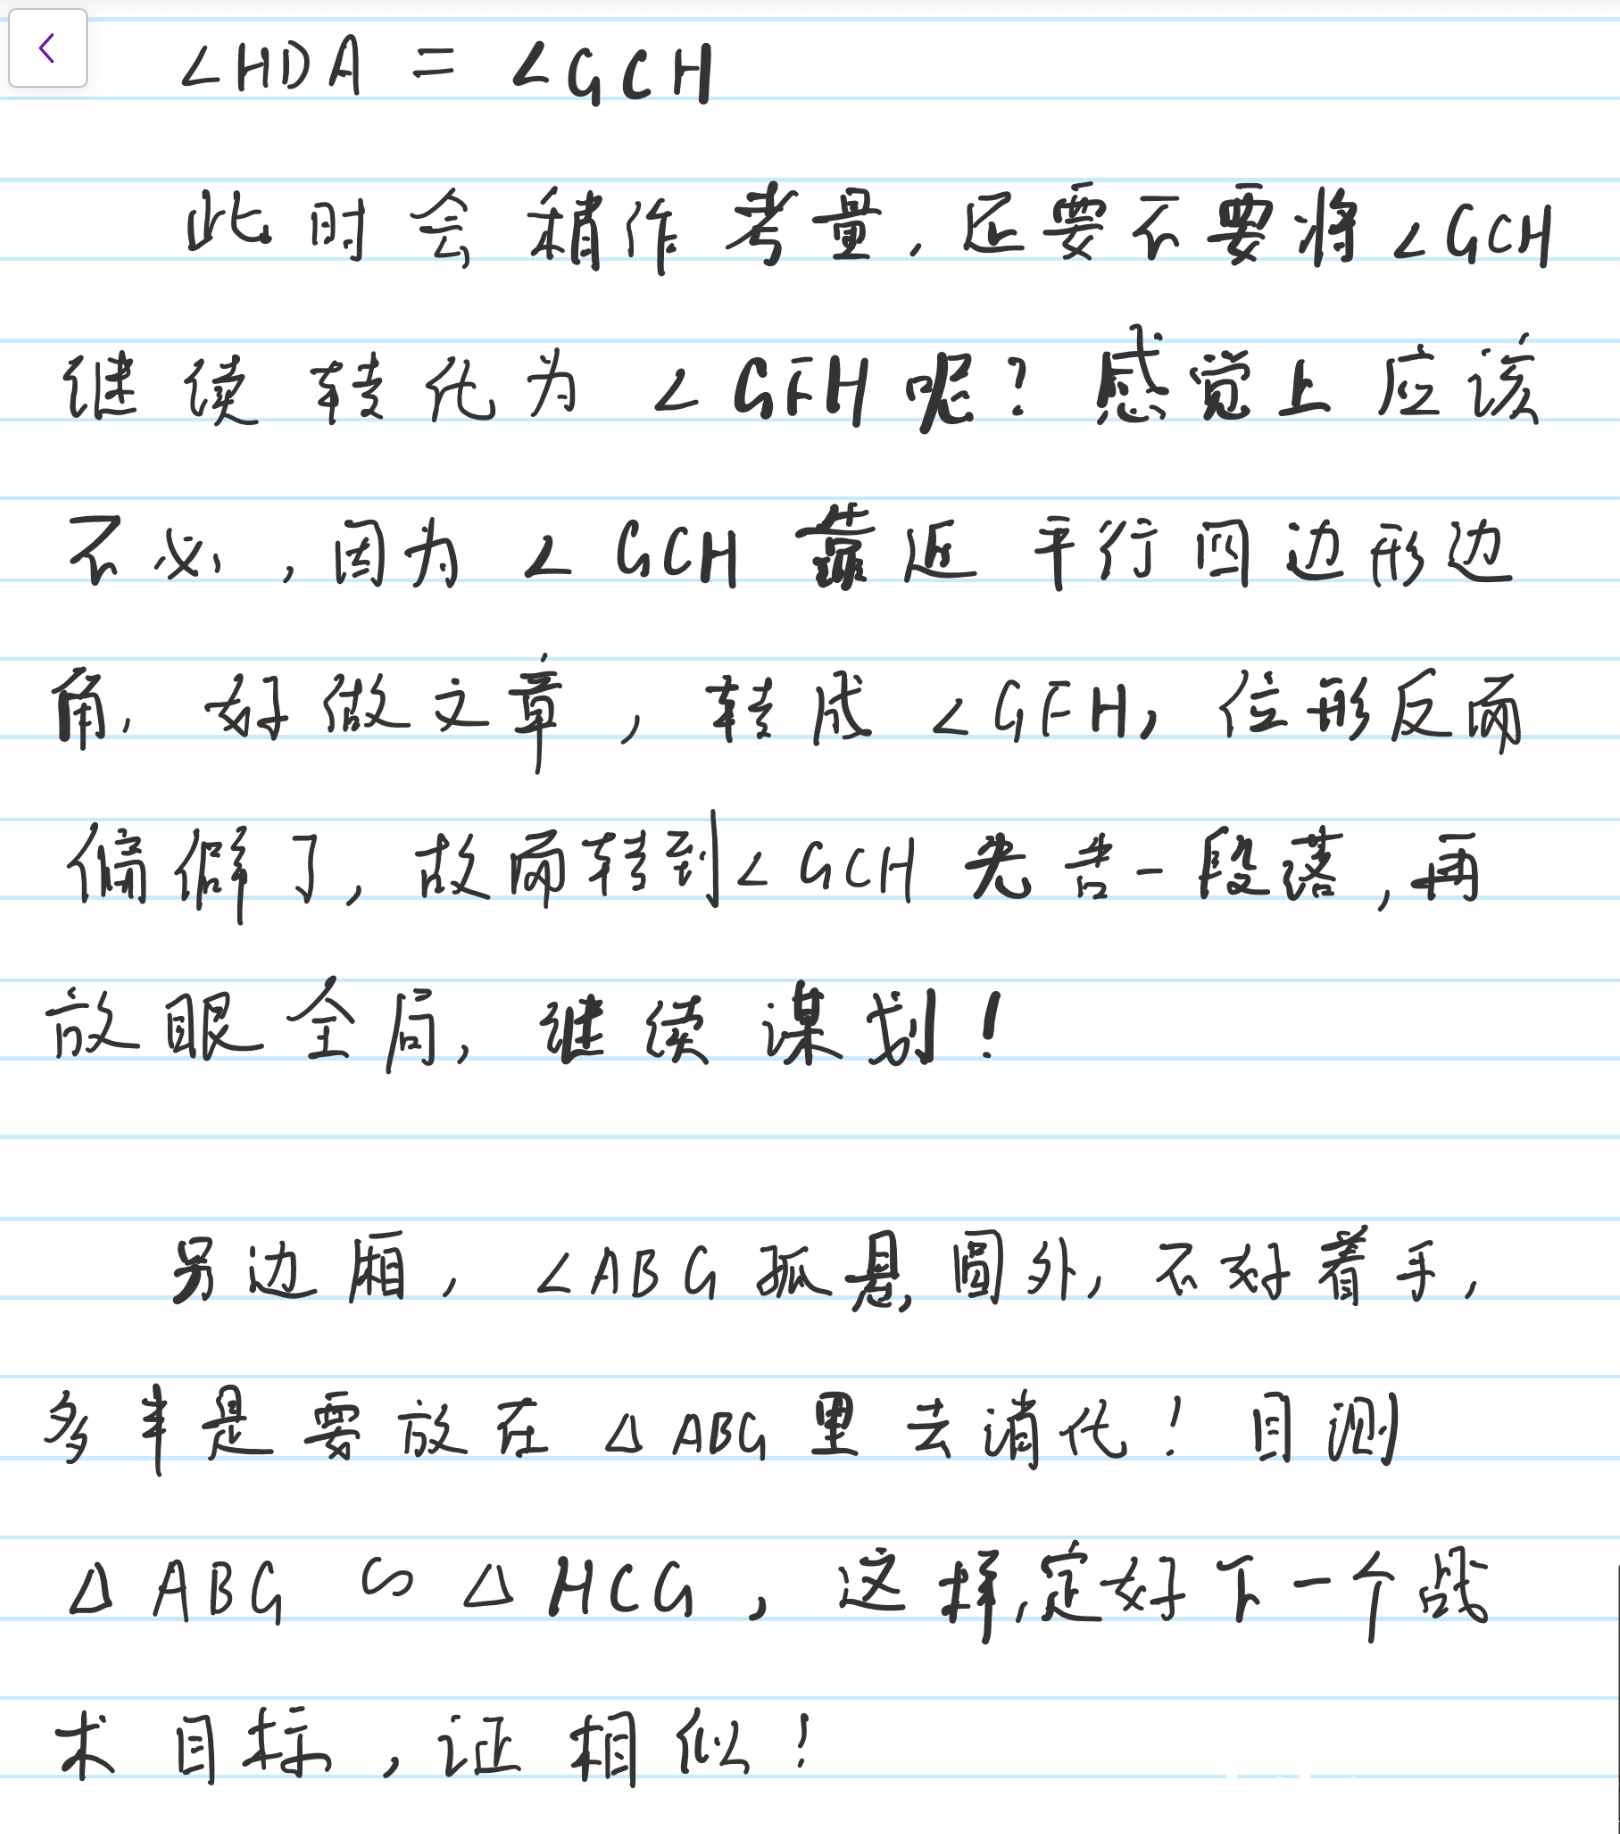 ∠HDA = ∠GCH
此时会稍作考量，还要不要将∠GCH
继续转化为∠GFH呢？感觉上应该
不必，因为∠GCH靠近平行四边形边
角，好做文章，转成∠GFH，位形反而
偏僻了，故而转到∠GCH先告一段落，再
放眼全局，继续谋划！
另边厢，∠ABG孤悬圆外，不好着手，
多半是要放在△ABG里去消化！目测
△ABG∽△HCG，这样，定好下一个战
术目标，证相似！